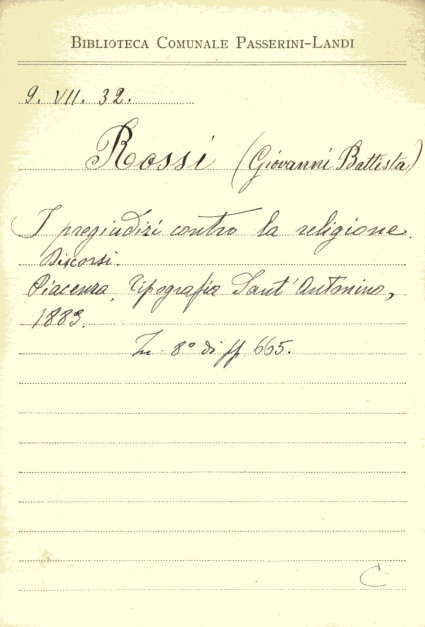 BIBLIOTECA COMUNALE PASSERINI-LANDI
9. VII. 32.
Rossi (Giovanni Battista)
I pregiudizi contro la religione.
Discorsi.
Piacenza, Tipografia Sant'Antonino,
1883.
In 8° di pp 665.
C